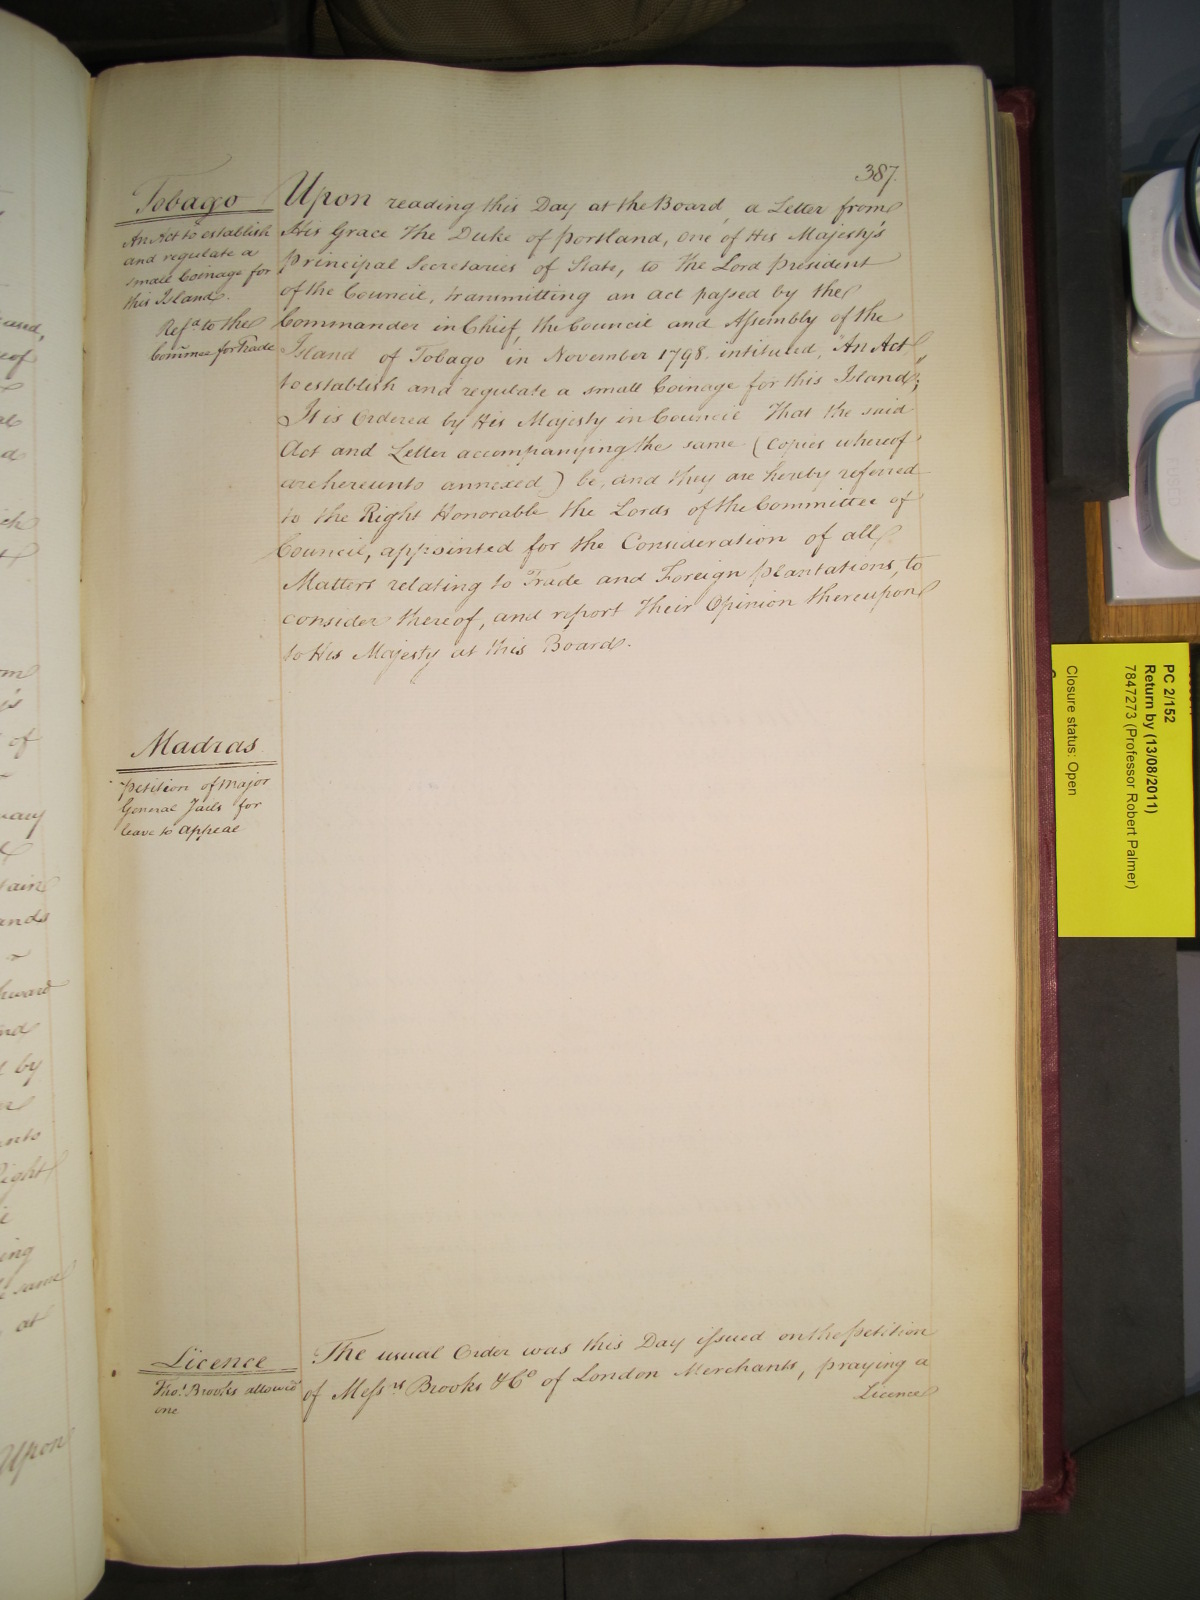 387.
Tobago
An Act to establish
and regulate a
small Coinage for
this Island.
Refd. to the
Commee for Trade
Upon reading this Day at the Board, a Letter from
His Grace The Duke of Portland, one of His Majesty's
Principal Secretaries of State, to the Lord President
of the Council, transmitting an act passed by the
Commander in Chief, the Council and Assembly of the
Island of Tobago in November 1798. intituled, "An Act
to establish and regulate a small Coinage for this Island";
It is Ordered by His Majesty in Council That the said
Act and Letter accompanying the same (Copies whereof
are hereunto annexed) be, and they are hereby referred
to the Right Honorable the Lords of the Committee of
Council, appointed for the Consideration of all
Matters relating to Trade and Foreign Plantations, to
consider thereof, and report Their Opinion thereupon
to His Majesty at this Board.
Madras
Petition of Major
General for
leave to appeal
Licence
Thos. Brooks allowed
one
The usual Order was this Day issued on the Petition
of Messrs Brooks & Co of London Merchants, praying a
Licence
and,
of
ich
om
of
tain
ands
and
by
ants
Right
ing
same
at
Upon
PC 2/152
Return by (13/08/2011)
7847273 (Professor Robert Palmer)
Closure status: Open